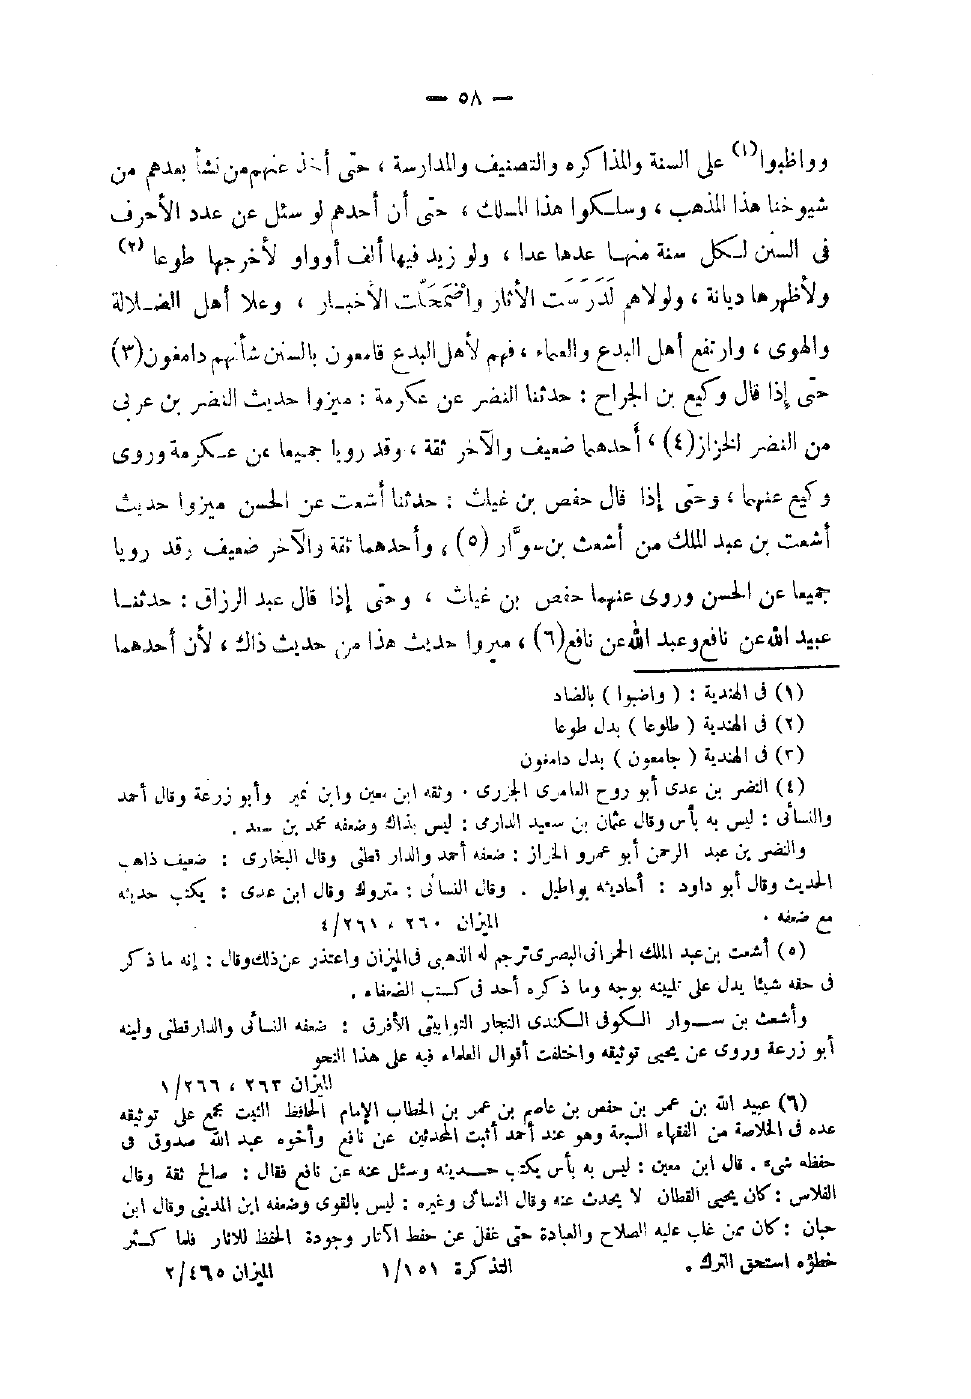 — ٥٨ —
وواظبوا(١) على السنة والمذاكره والتصنيف والمدارسة ، حتى أخذ عنهم من نشأ بعدهم من
شيوخنا هذا المذهب ، وسلكوا هذا المسلك ، حتى أن أحدهم لو سئل عن عدد الأحرف
فى السنن لكل سنة منها عدها عدا ، ولو زيد فيها ألف أوواو لأخرجها طوعا (٢)
ولأظهرها ديانة ، ولولاهم لَدَرَسَت الأثار واضْمَحَلَّت الأخبار ، وعلا أهل الضلالة
والهوى ، وارتفع أهل البدع والعماء ، فهم لأهل البدع قامعون بالسنن شأنهم دامغون(٣)
حتى إذا قال وكيع بن الجراح : حدثنا النضر عن عكرمة : ميزوا حديث النضر بن عربى
من النضر الخزاز(٤) ، أحدهما ضعيف والآخر ثقة ، وقد رويا جميعا عن عكرمة وروى
وكيع عنهما ، وحتى إذا قال حفص بن غياث : حدثنا أشعث عن الحسن ميزوا حديث
أشعث بن عبد الملك من أشعث بن سوَّار (٥) ، وأحدهما ثقة والآخر ضعيف وقد رويا
جميعا عن الحسن وروى عنهما حفص بن غياث ، وحتى إذا قال عبد الرزاق : حدثنا
عبيد الله عن نافع وعبد الله عن نافع(٦) ، ميروا حديث هذا من حديث ذاك ، لأن أحدهما
(١) فى الهندية : ( واضبوا ) بالضاد
(٢) فى الهندية ( طلوعا ) بدل طوعا
(٣) فى الهندية ( جامعون ) بدل دامغون
(٤) النضر بن عدى أبو روح العامرى الجزرى . وثقه ابن معين وابن نمير وأبو زرعة وقال أحمد
والنسائى : ليس به بأس وقال عثمان بن سعيد الدارمى : ليس بذاك وضعفه محمد بن سعد .
والنضر بن عبد الرحمن أبو عمرو الخزاز : ضعفه أحمد والدار قطنى وقال البخارى : ضعيف ذاهب
الحديث وقال أبو داود : أحاديثه بواطيل . وقال النسائى : متروك وقال ابن عدى : يكتب حديثه
مع ضعفه . الميزان ٢٦٠ ، ٤/٢٦١
(٥) أشعث بن عبد الملك الحمرانى البصرى ترجم له الذهبى فى الميزان واعتذر عن ذلك وقال : إنه ما ذكر
فى حقه شيئا يدل على تليينه بوجه وما ذكره أحد فى كتب الضعفاء .
وأشعث بن سوار الكوفى الكندى النجار التوابيتى الأفرق : ضعفه النسائى والدار قطنى ولينه
أبو زرعة وروى عن يحيى توثيقه واختلفت أقوال العلماء فيه على هذا النحو
الميزان ٢٦٣ ، ١/٢٦٦
(٦) عبيد الله بن عمر بن حفص بن عاصم بن عمر بن الخطاب الإمام الحافظ الثبت مجمع على توثيقه
عده فى الخلاصة من الفقهاء السبعة وهو عند أحمد أثبت المحدثين عن نافع وأخوه عبد الله صدوق فى
حفظه شىء . قال ابن معين : ليس به بأس يكتب حديثه وسئل عنه عن نافع فقال : صالح ثقة وقال
الفلاس : كان يحيى القطان لا يحدث عنه وقال النسائى وغيره : ليس بالقوى وضعفه ابن المدينى وقال ابن
حبان : كان ممن غلب عليه الصلاح والعبادة حتى غفل عن حفظ الآثار وجودة الحفظ للاثار فلما كثر
خطؤه استحق الترك . التذكرة ١/١٥١ الميزان ٢/٤٦٥